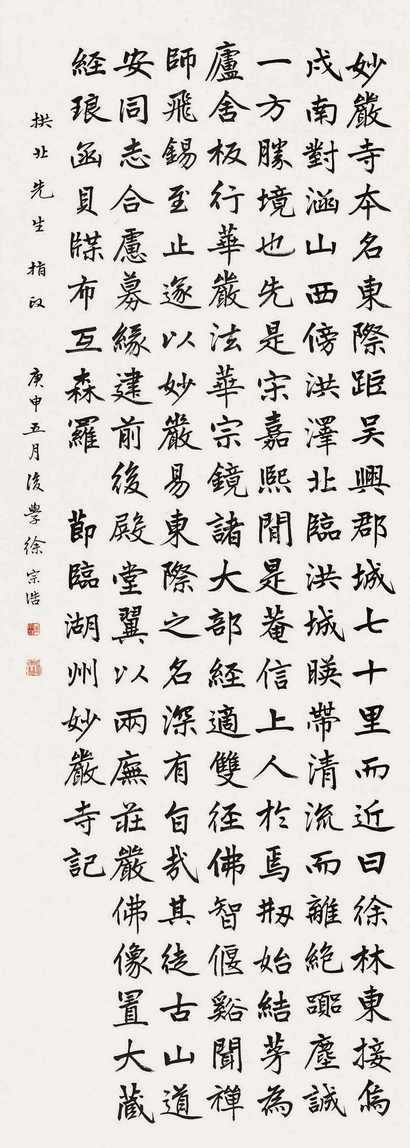 妙嚴寺本名東際距吴興郡城七十里而近曰徐林東接烏
戍南對涵山西傍洪澤北臨洪城暎帶清流而離絶嚻塵誠
一方勝境也先是宋嘉熙間是菴信上人於焉刱始結茅為
廬舍板行華嚴法華宗鏡諸大部經適雙徑佛智偃谿聞禪
師飛錫至止遂以妙嚴易東際之名深有㫖哉其徒古山道
安同志合慮募緣建前後殿堂翼以兩廡莊嚴佛像置大藏
經琅函貝牒布互森羅 節臨湖州妙嚴寺記
拱北先生指政 庚申五月後學徐宗浩